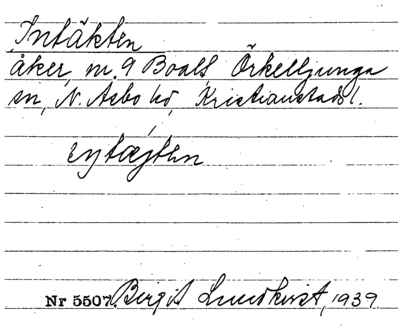 Intäkten
åker, m. 9 Boalt, Örkelljunga
sn, N. Åsbo hd, Kristianstads l.
Nr 5507. Birgit Lundkvist, 1939